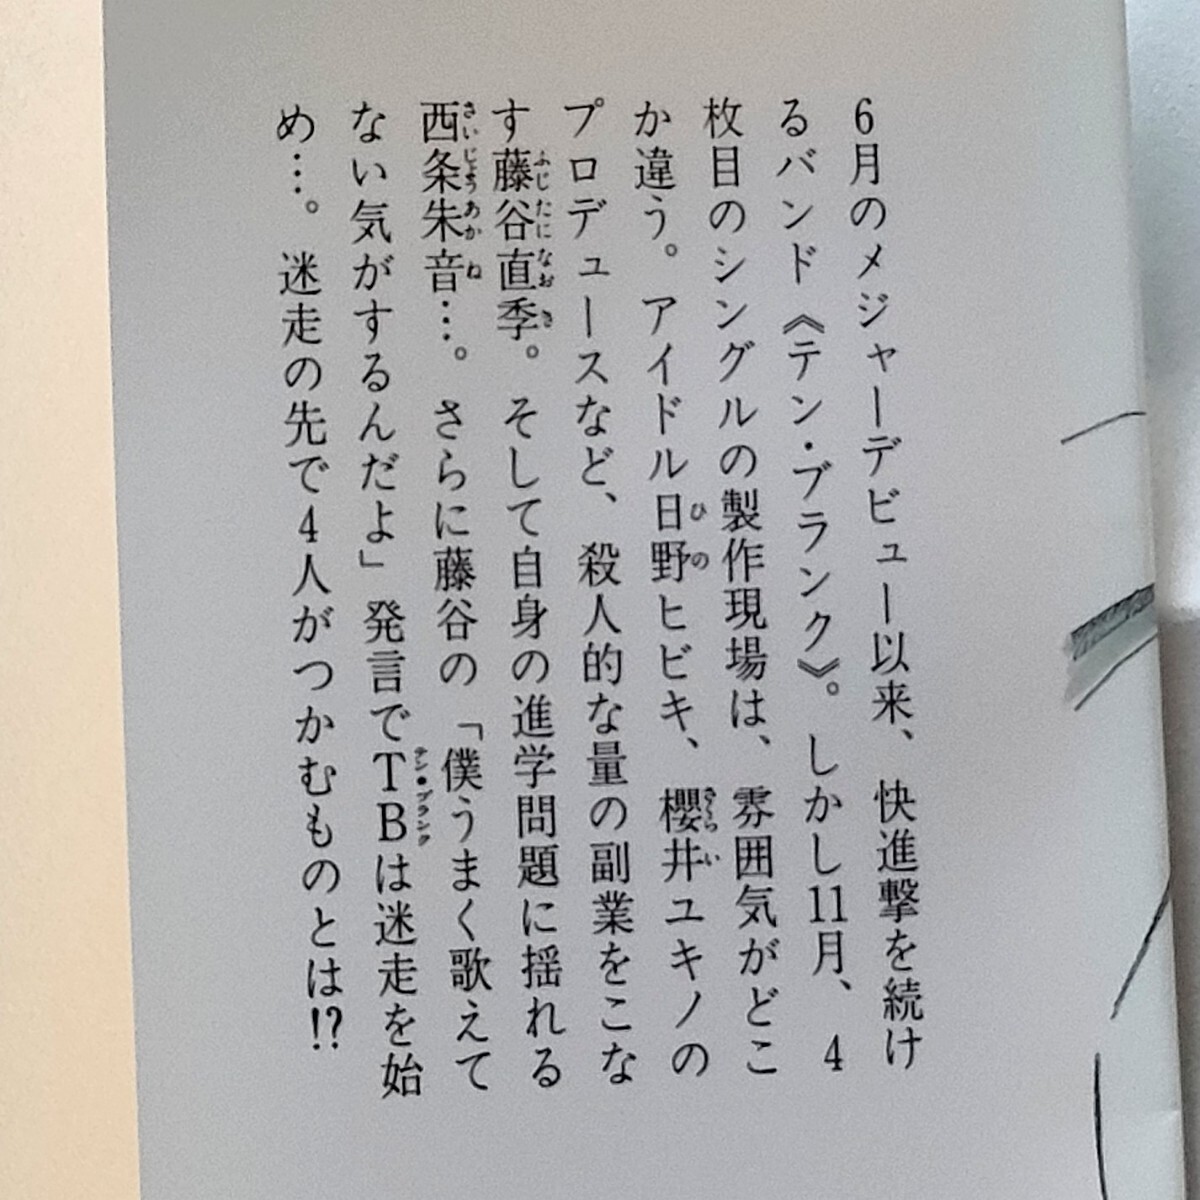 6月のメジャーデビュー以来、快進撃を続け
るバンド《テン・ブランク》。しかし11月、4
枚目のシングルの製作現場は、雰囲気がどこ
か違う。アイドル日野ヒビキ、櫻井ユキノの
プロデュースなど、殺人的な量の副業をこな
す藤谷直季。そして自身の進学問題に揺れる
西条朱音…。さらに藤谷の「僕うまく歌えて
ない気がするんだよ」発言でTBは迷走を始
め…。迷走の先で4人がつかむものとは!?